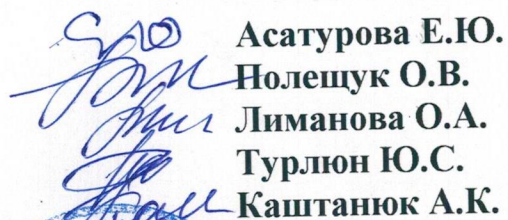 Асатурова Е.Ю.
Полещук О.В.
Лиманова О.А.
Турлюн Ю.С.
Каштанюк А.К.